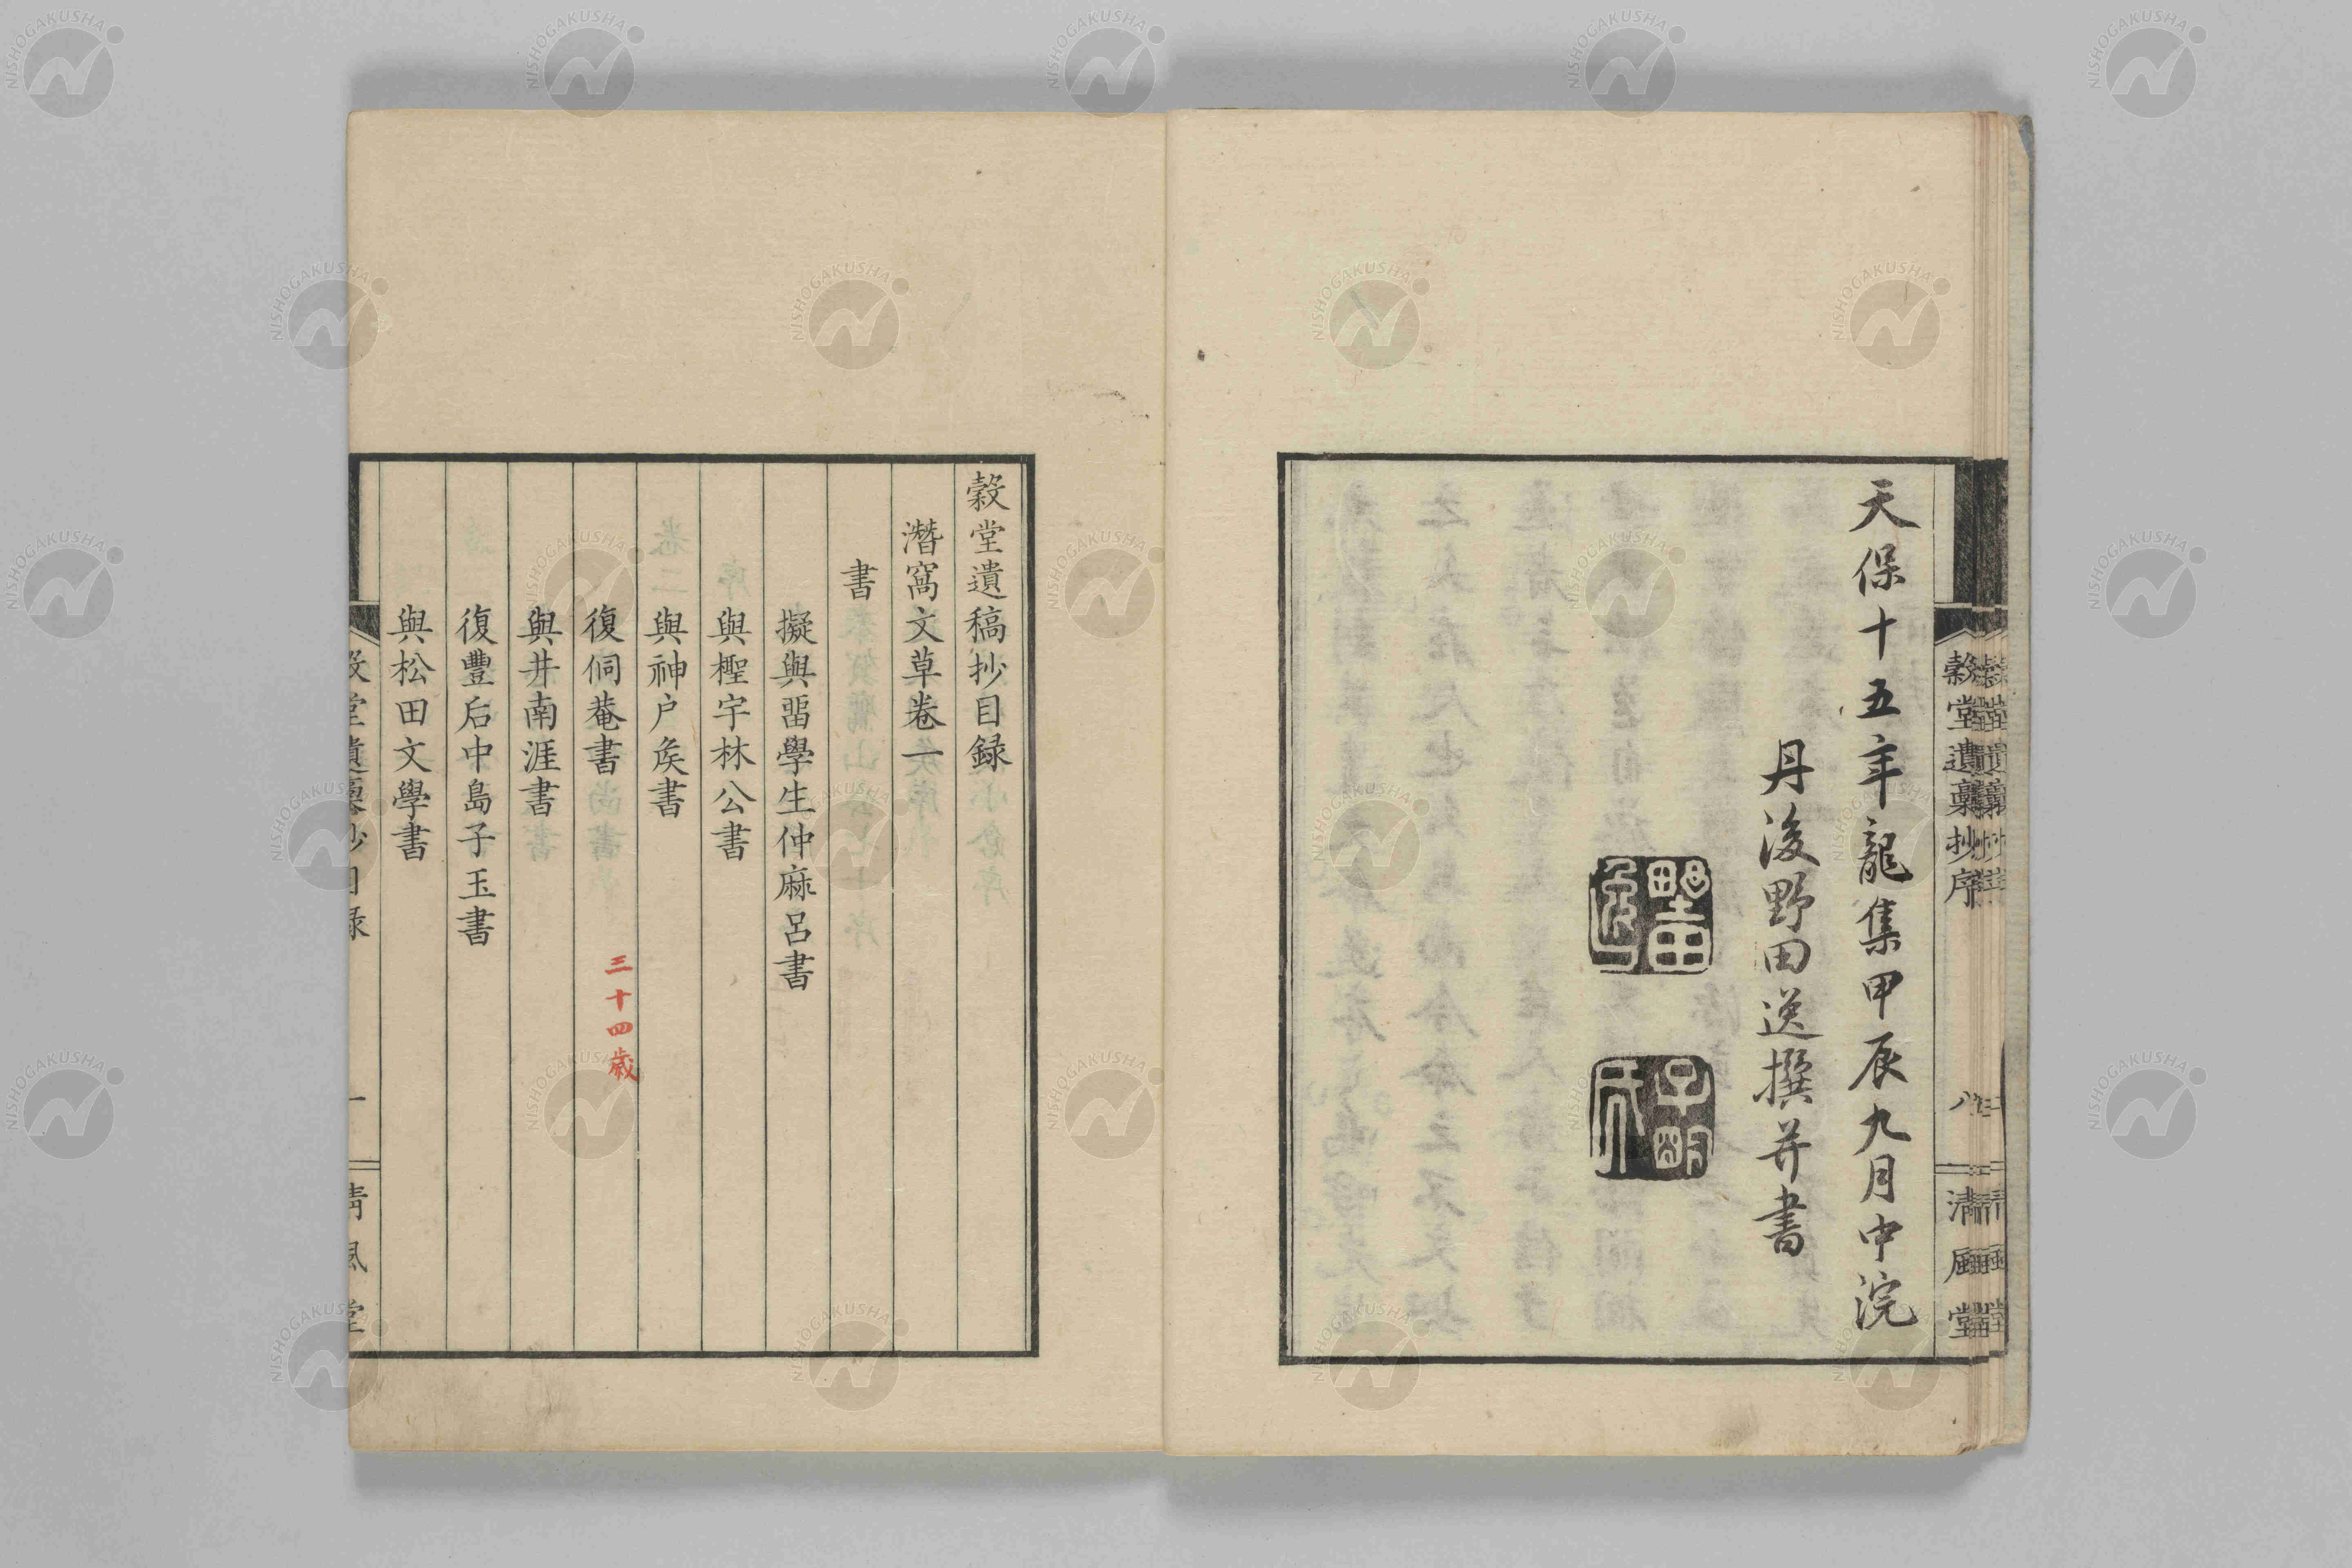 天保十五年龍集甲辰九月中浣
丹後野田逸撰并書
穀堂遺稾抄序
八
清風堂
穀堂遺稿抄目録
潛窩文草卷一
書
擬與畱學生仲麻呂書
與檉宇林公書
與神户矦書
復侗菴書
三十四歳
與井南涯書
復豐后中島子玉書
與松田文學書
穀堂遺稾抄目録
一
清風堂
NISHOGAKUSHA